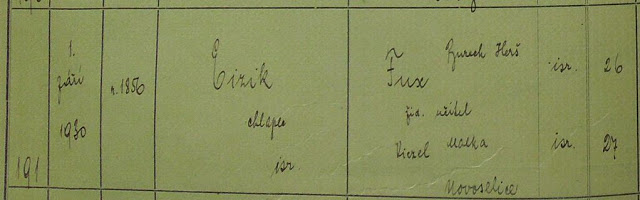 1.
září
1930
191
r. 1856
Eizik
chlapec
isr.
Fux Burech Herš
žid. učitel
Viezel Malka
Novoselice
isr. 26
isr. 27